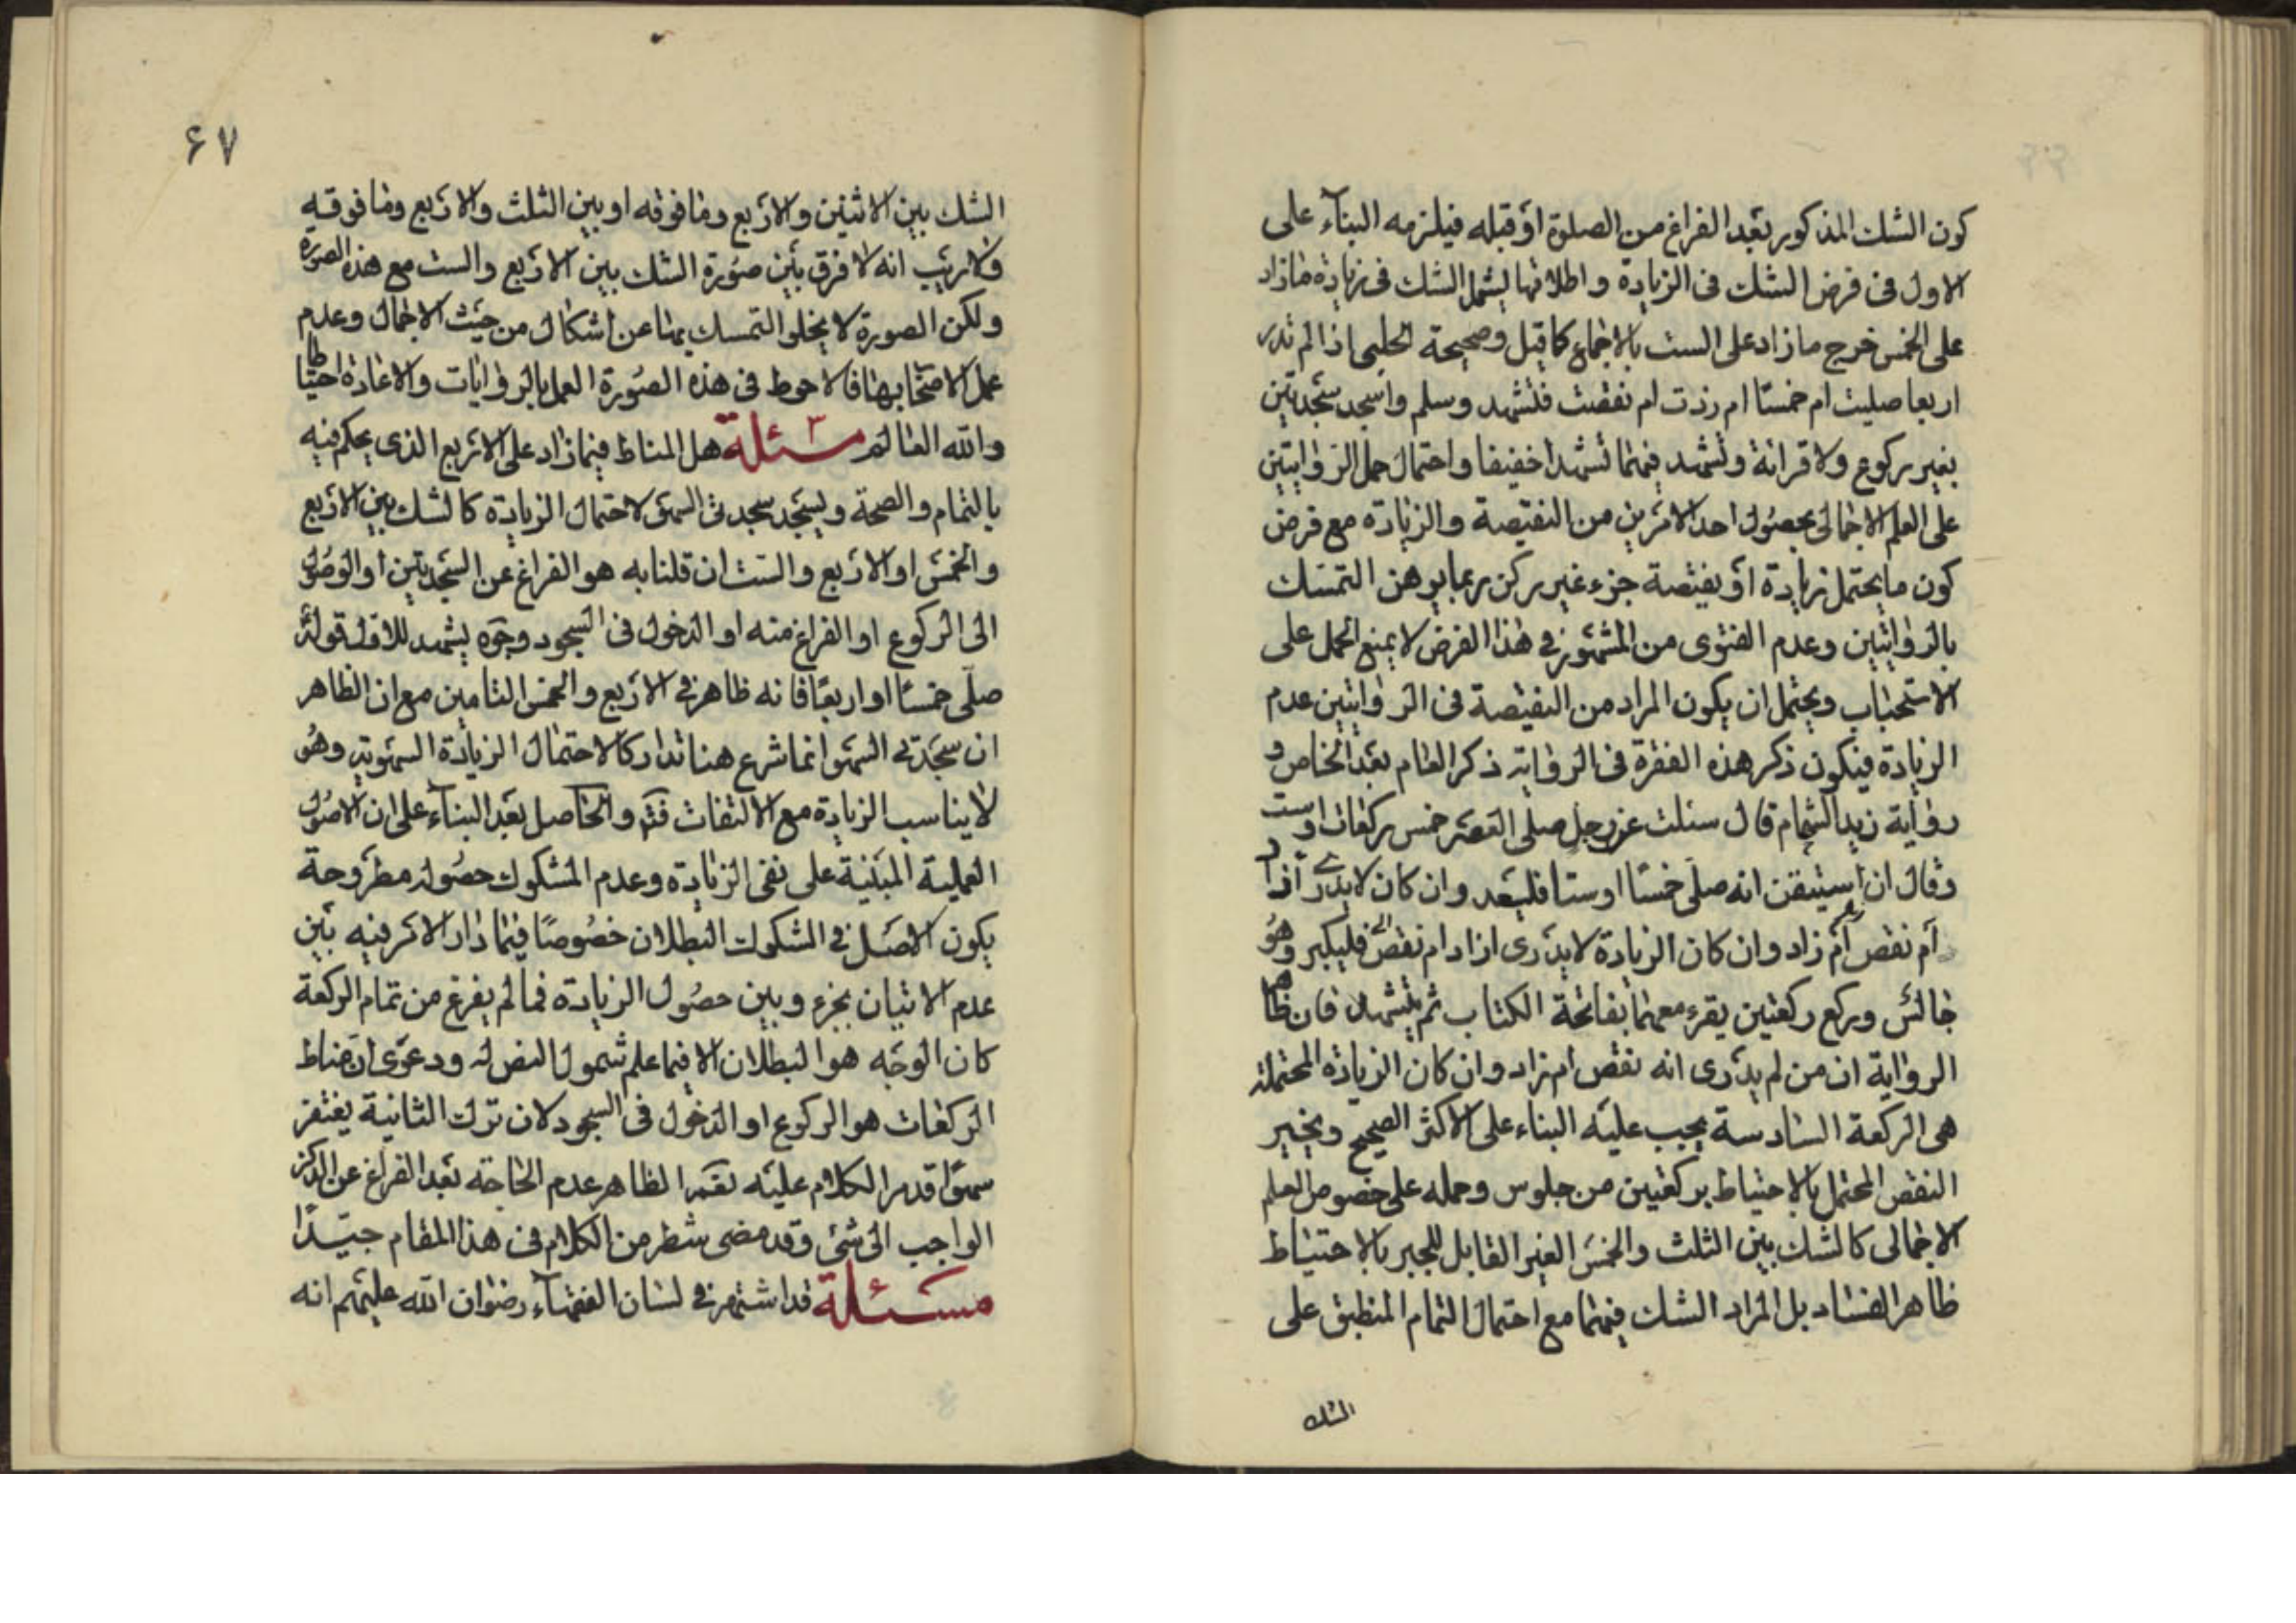 كون الشك المذكور بعد الفراغ من الصلوة او قبله فيلزمه البناء على
الاول فى فرض الشك فى الزيادة و اطلاقها يشمل الشك فى زيادة مازاد
على الخمس خرج مازاد على الست بالاجماع كما قيل وصحيحة الحلبى اذا لم تدر
اربعا صليت ام خمسا ام زدت ام نقصت فتشهد وسلم واسجد سجدتين
بغير ركوع ولا قرائة وتشهد فيهما تشهدا خفيفا واحتمال حمل الروايتين
على العلم الاجمالى بحصول احد الامرين من النقيصة والزيادة مع فرض
كون ما يحتمل زيادة او نقيصة جزء غير ركن ربما يوهن التمسك
بالروايتين وعدم الفتوى من المشهور فى هذا الفرض لا يمنع الحمل على
الاستحباب ويحتمل ان يكون المراد من النقيصة فى الروايتين عدم
الزيادة فيكون ذكر هذه الفقرة فى الرواية ذكر العام بعد الخاص و
رواية زيد الشحام قال سئلت عن رجل صلى العصر خمس ركعات او ست
وقال ان استيقن انه صلى خمسا او ستا فليعد وان كان لا يدرى أزاد
أم نقص أم زاد وان كان الزيادة لا يدرى ازاد ام نقص فليكبر وهو
جالس وركع ركعتين يقرء معهما بفاتحة الكتاب ثم يتشهد فان ظاهر
الرواية ان من لم يدرى انه نقص ام زاد وان كان الزيادة المحتملة
هى الركعة السادسة يجب عليه البناء على الاكثر الصحيح ويجبر
النقص المحتمل بالاحتياط بركعتين من جلوس وحمله على خصوص العلم
الاجمالى كالشك بين الثلث والخمس الغير القابل للجبر بالاحتياط
ظاهر الفساد بل المراد الشك فيهما مع احتمال التمام المنطبق على
الشك
۶۷
الشك بين الاثنين والاربع ومافوقه او بين الثلث والاربع ومافوقه
ولاريب انه لا فرق بين صورة الشك بين الاربع والست مع هذه الصورة
ولكن الصورة لا يخلو التمسك بها عن اشكال من حيث الاجمال وعدم
عمل الاصحاب بها فالاحوط فى هذه الصورة العمل بالروايات والاعادة احتياطا
والله العالم ٣ مسئلة هل المناط فيما زاد على الاربع الذى يحكم فيه
بالتمام والصحة ويسجد سجدتى السهو لاحتمال الزيادة كالشك بين الاربع
والخمس او الاربع والست ان قلنا به هو الفراغ عن السجدتين او الوصول
الى الركوع او الفراغ منه او الدخول فى السجود وجوه يشهد للاول قوله
صلى خمسا او اربعا فانه ظاهر فى الاربع والخمس التامين مع ان الظاهر
ان سجدتى السهو انما شرع هنا تداركا لاحتمال الزيادة السهوية وهو
لا يناسب الزيادة مع الالتفات فتم والحاصل بعد البناء على ان الاصول
العملية المبنية على نفى الزيادة وعدم المشكوك حصوله مطروحة
يكون الاصل فى الشكوك البطلان خصوصا فيما دار الامر فيه بين
عدم الاتيان بجزء وبين حصول الزيادة فما لم يفرغ من تمام الركعة
كان الوجه هو البطلان الا فيما علم شمول النص له ودعوى ان مناط
الركعات هو الركوع او الدخول فى السجود لان ترك الثانية يغتفر
سهوا قد مر الكلام عليه نعم الظاهر عدم الحاجة بعد الفراغ عن الذكر
الواجب الى شئ وقد مضى شطر من الكلام فى هذا المقام جيدا
مسئلة قد اشتهر فى لسان الفقهاء رضوان الله عليهم انه